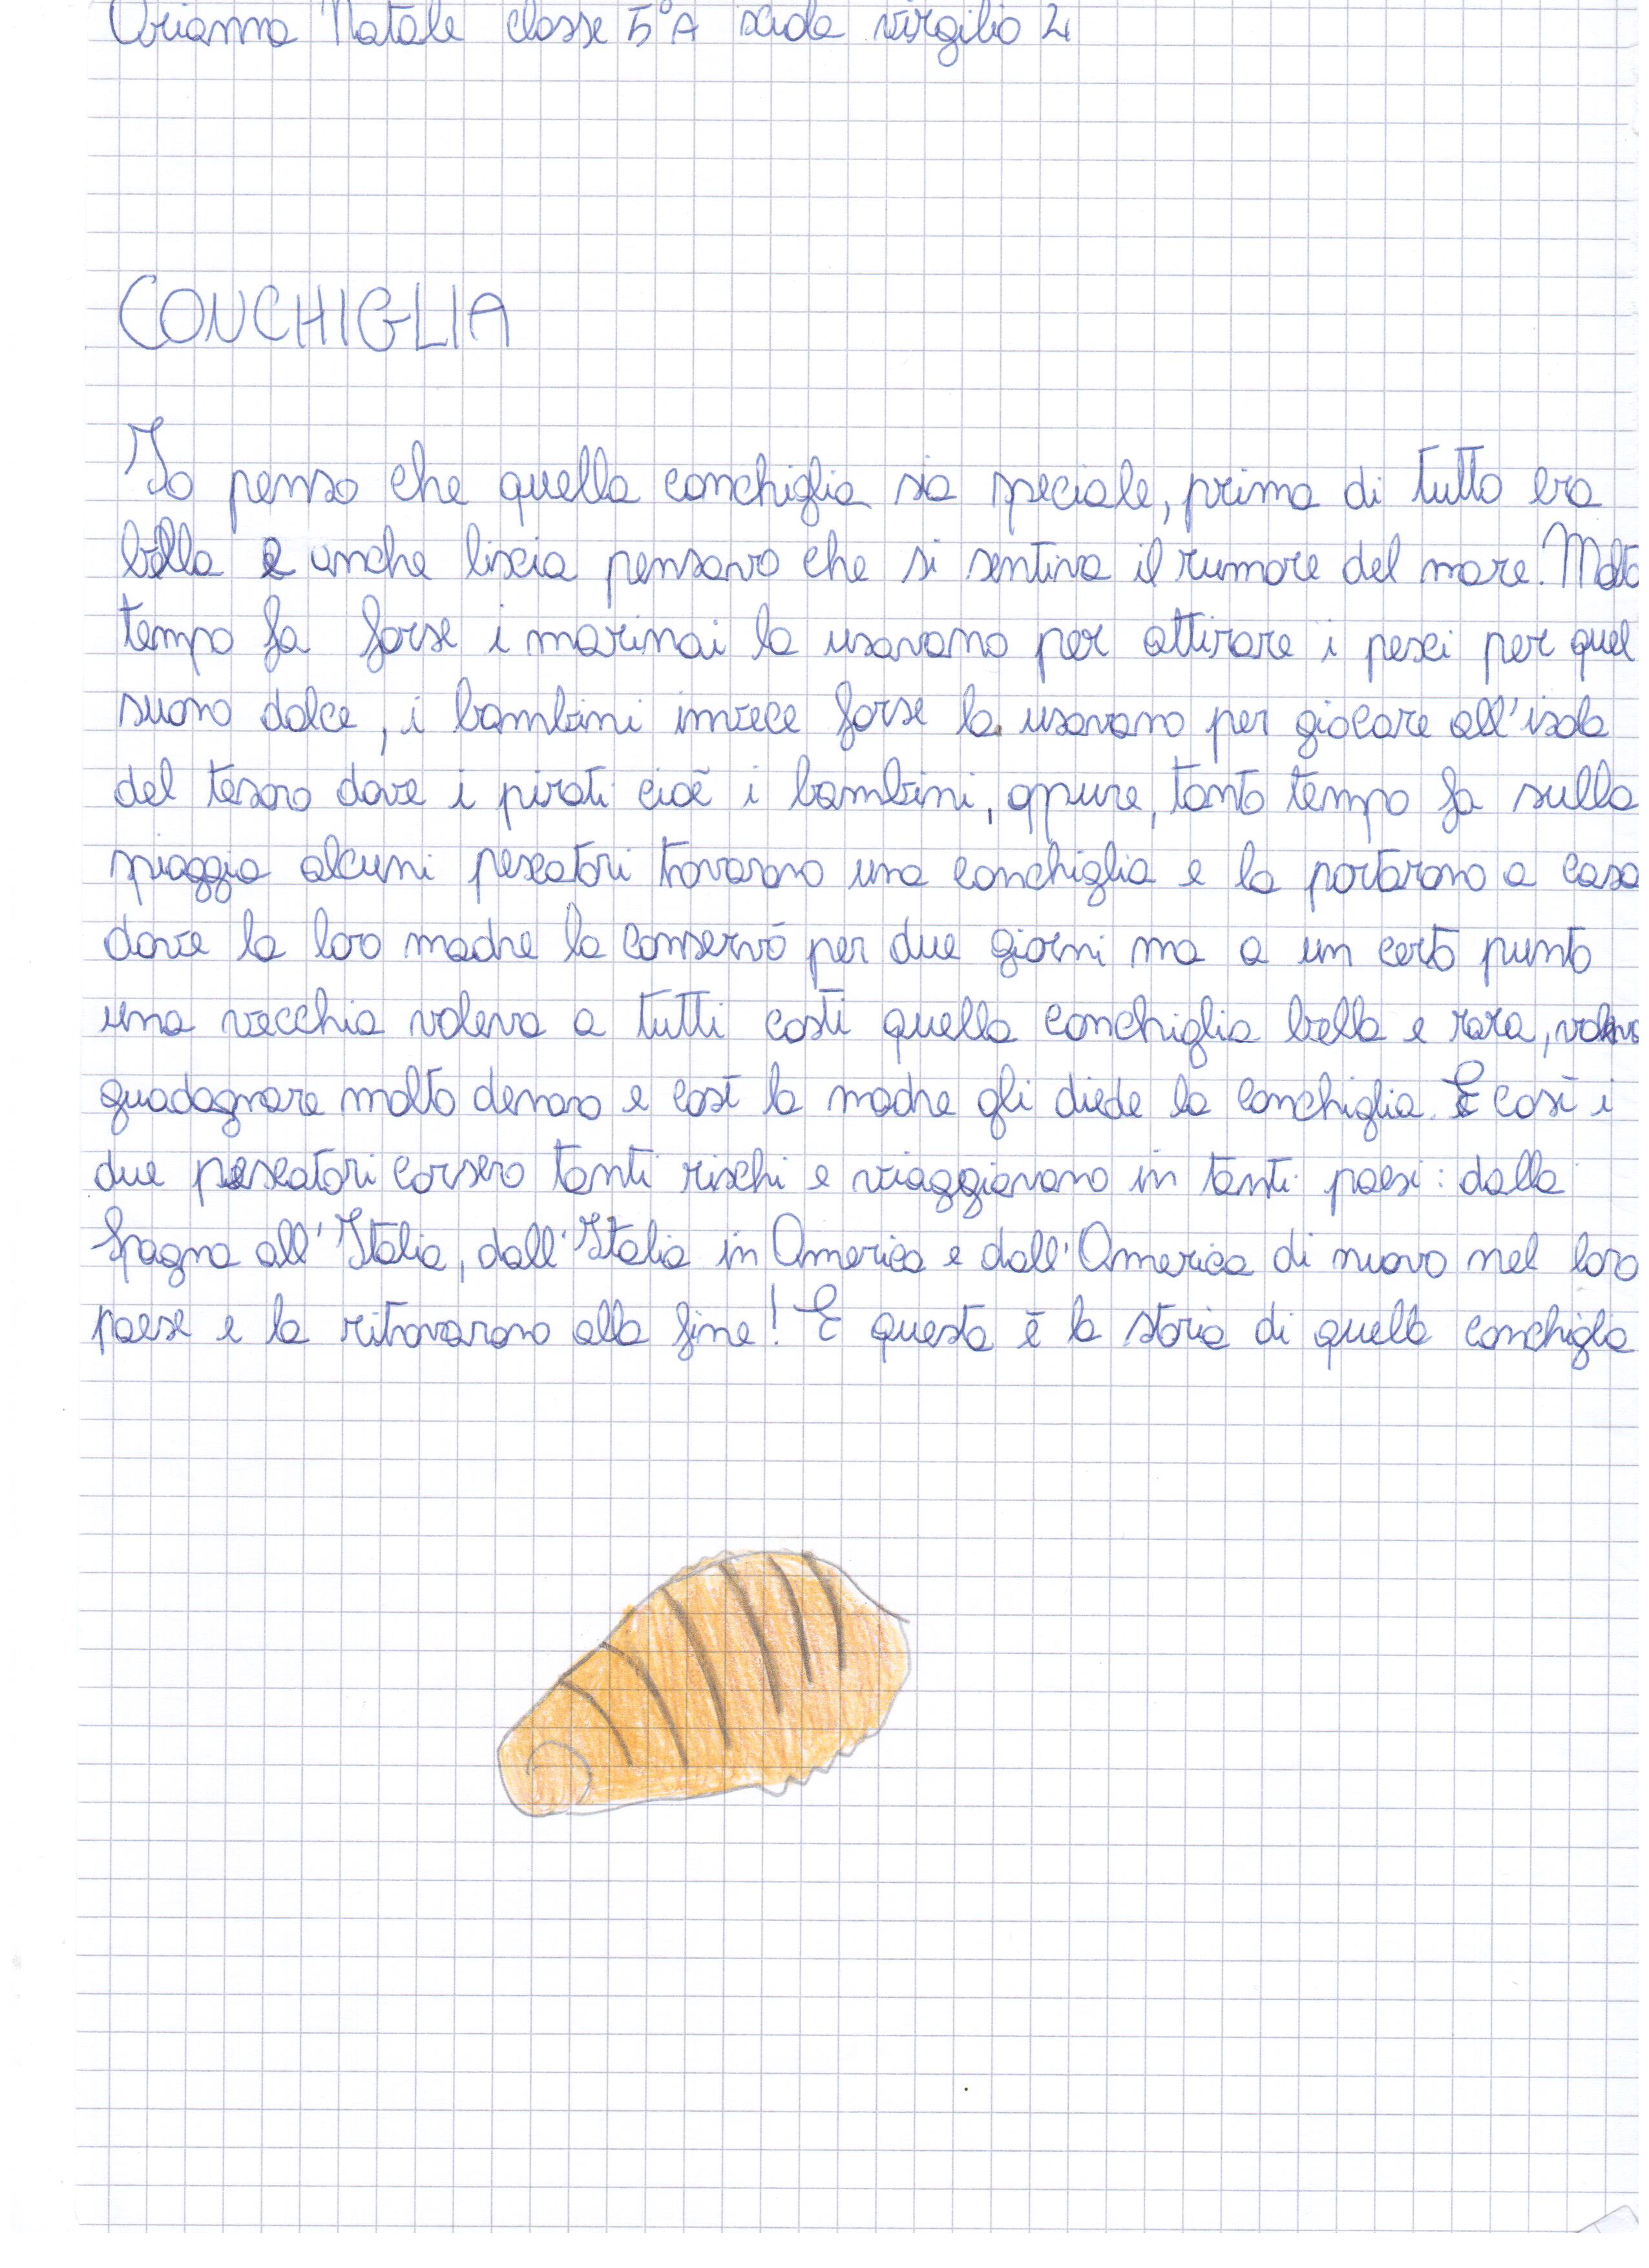 Arianna Natale classe 5°A scuola virgilio 4
CONCHIGLIA
Io penso che quella conchiglia sia speciale, prima di tutto era
bella e anche liscia pensavo che si sentiva il rumore del mare. Molto
tempo fa forse i marinai la usavano per attirare i pesci per quel
suono dolce, i bambini invece forse la usavano per giocare all'isola
del tesoro dove i pirati cioè i bambini, oppure, tanto tempo fa sulla
spiaggia alcuni pescatori trovarono una conchiglia e la portarono a casa
dove la loro madre la conservò per due giorni ma a un certo punto
una vecchia voleva a tutti costi quella conchiglia bella e rara, voleva
guadagnare molto denaro e così la madre gli diede la conchiglia. E così i
due pescatori corsero tanti rischi e viaggiarono in tanti paesi: dalla
Spagna all'Italia, dall'Italia in America e dall'America di nuovo nel loro
paese e la ritrovarono alla fine! E questa è la storia di quella conchiglia